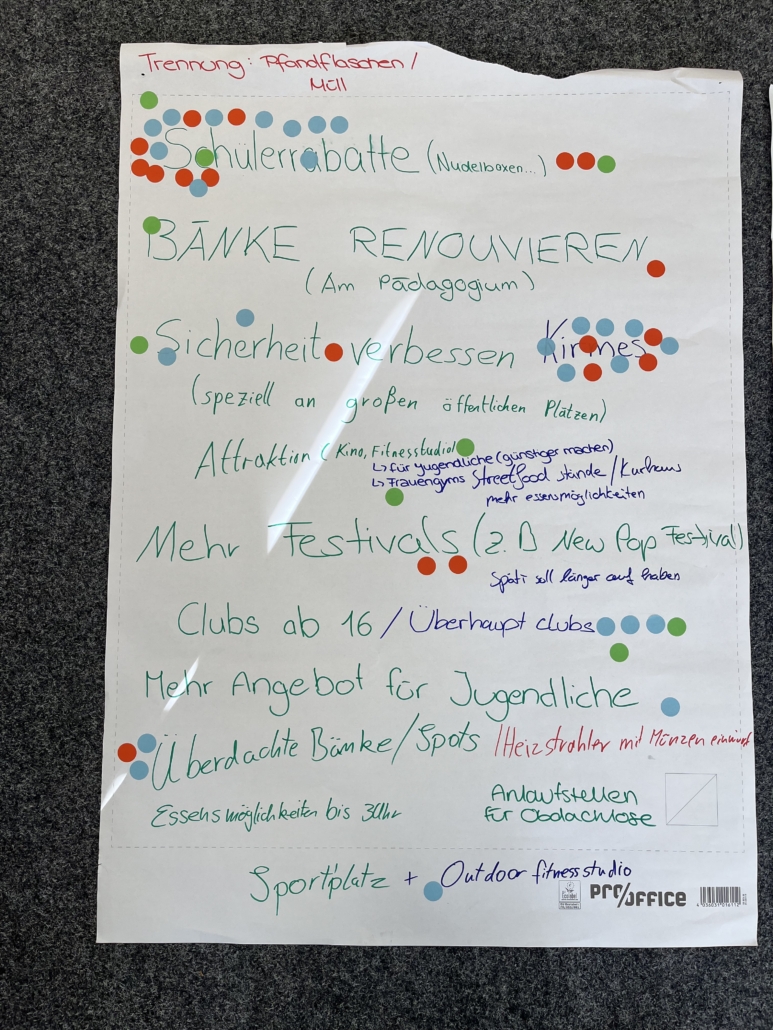 Trennung: Pfandflaschen /
Müll
Schülerrabatte (Nudelboxen...)
BÄNKE RENOUVIEREN
(Am Pädagogium)
Sicherheit verbessen
Kirmes
(speziell an großen öffentlichen Plätzen)
Attraktion (Kino, Fitnesstudio)
↳ für jugendliche (günstiger machen)
↳ Frauengyms
Streetfood stände / Kurhaus
mehr essensmöglichkeiten
Mehr Festivals (z.B New Pop Festival)
Späti soll länger auf haben
Clubs ab 16 / Überhaupt clubs
Mehr Angebot für Jugendliche
Überdachte Bänke/Spots /Heizstrahler mit Münzen einwurf
Essensmöglichkeiten bis 3Uhr
Anlaufstellen
für Obdachlose
Sportplatz + Outdoor fitnessstudio
PRO/OFFICE